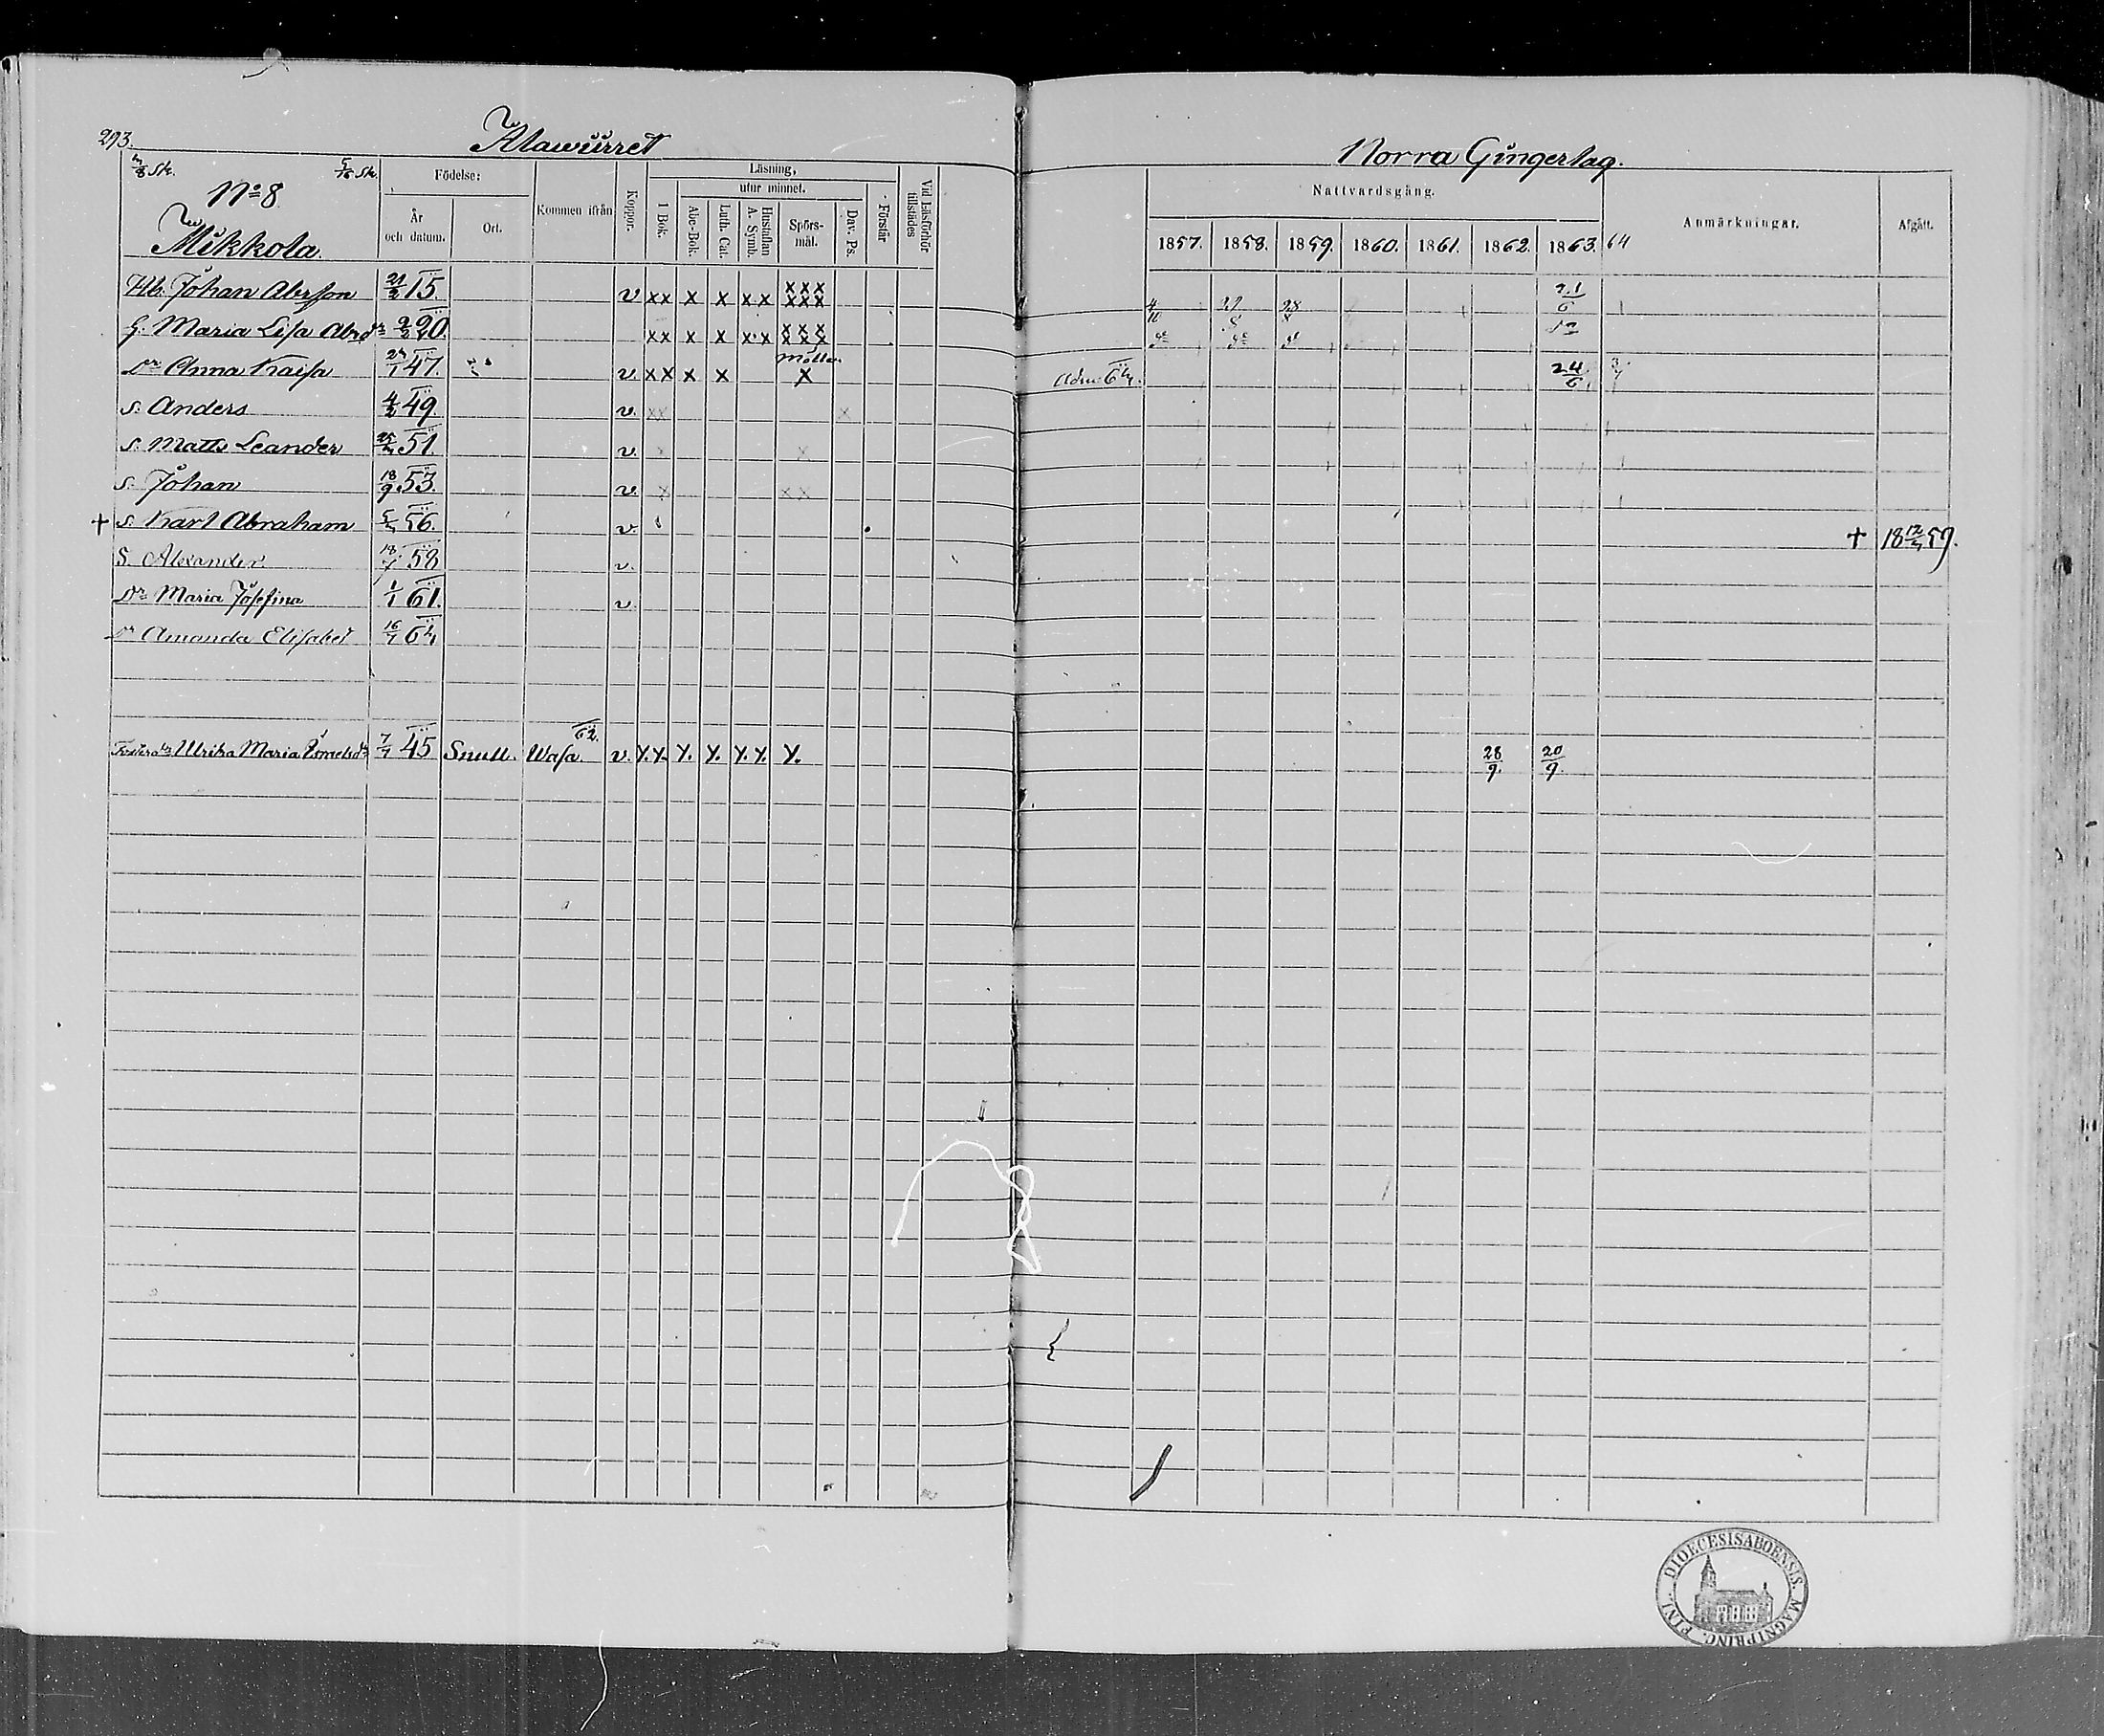 293.
Alawürret
Norra Güngerlag.
5/16 Sk.
Nº 8
Mikkola.
Födelse:
År och datum.
Ort.
Kommen ifrån
Koppor.
Läsning,
utur minnet.
I Bok.
Abc-Bok.
Luth. Cat.
Hustaflan A. Symb.
Spörs-mål.
Dav. Ps.
Förstår
Vid Läsförhör tillstädes
Nattvardsgång.
1857. 1858. 1859. 1860. 1861. 1862. 1863. 64
Anmärkningar.
Afgått.
Hb. Johan Abrsson 21/2 15. v xx x x xx xxx xxx 4/10 21/6
h. Maria Lisa Abrdr 20. xx x x xx xxx xxx
Dr Anna Kaisa 47. v. xx x x x Adm. 24/6
s. Anders 49. v. xx x
s. Matts Leander 51. v. x x
s. Johan 18/9 53. v. x xx
+ s. Karl Abraham 56. v. + 18 59.
S. Alexander 58 v.
Dr Maria Josefina 1/1 61. v
Dr Amanda Elisabet 64
Ulrika Maria 7/7 45 Smull. Wasa 62. v. x.x. x. x. x.x. x. 28/9. 20/9.
DIOECESIS ABOENSIS. MAGNI PRINC. FINL.